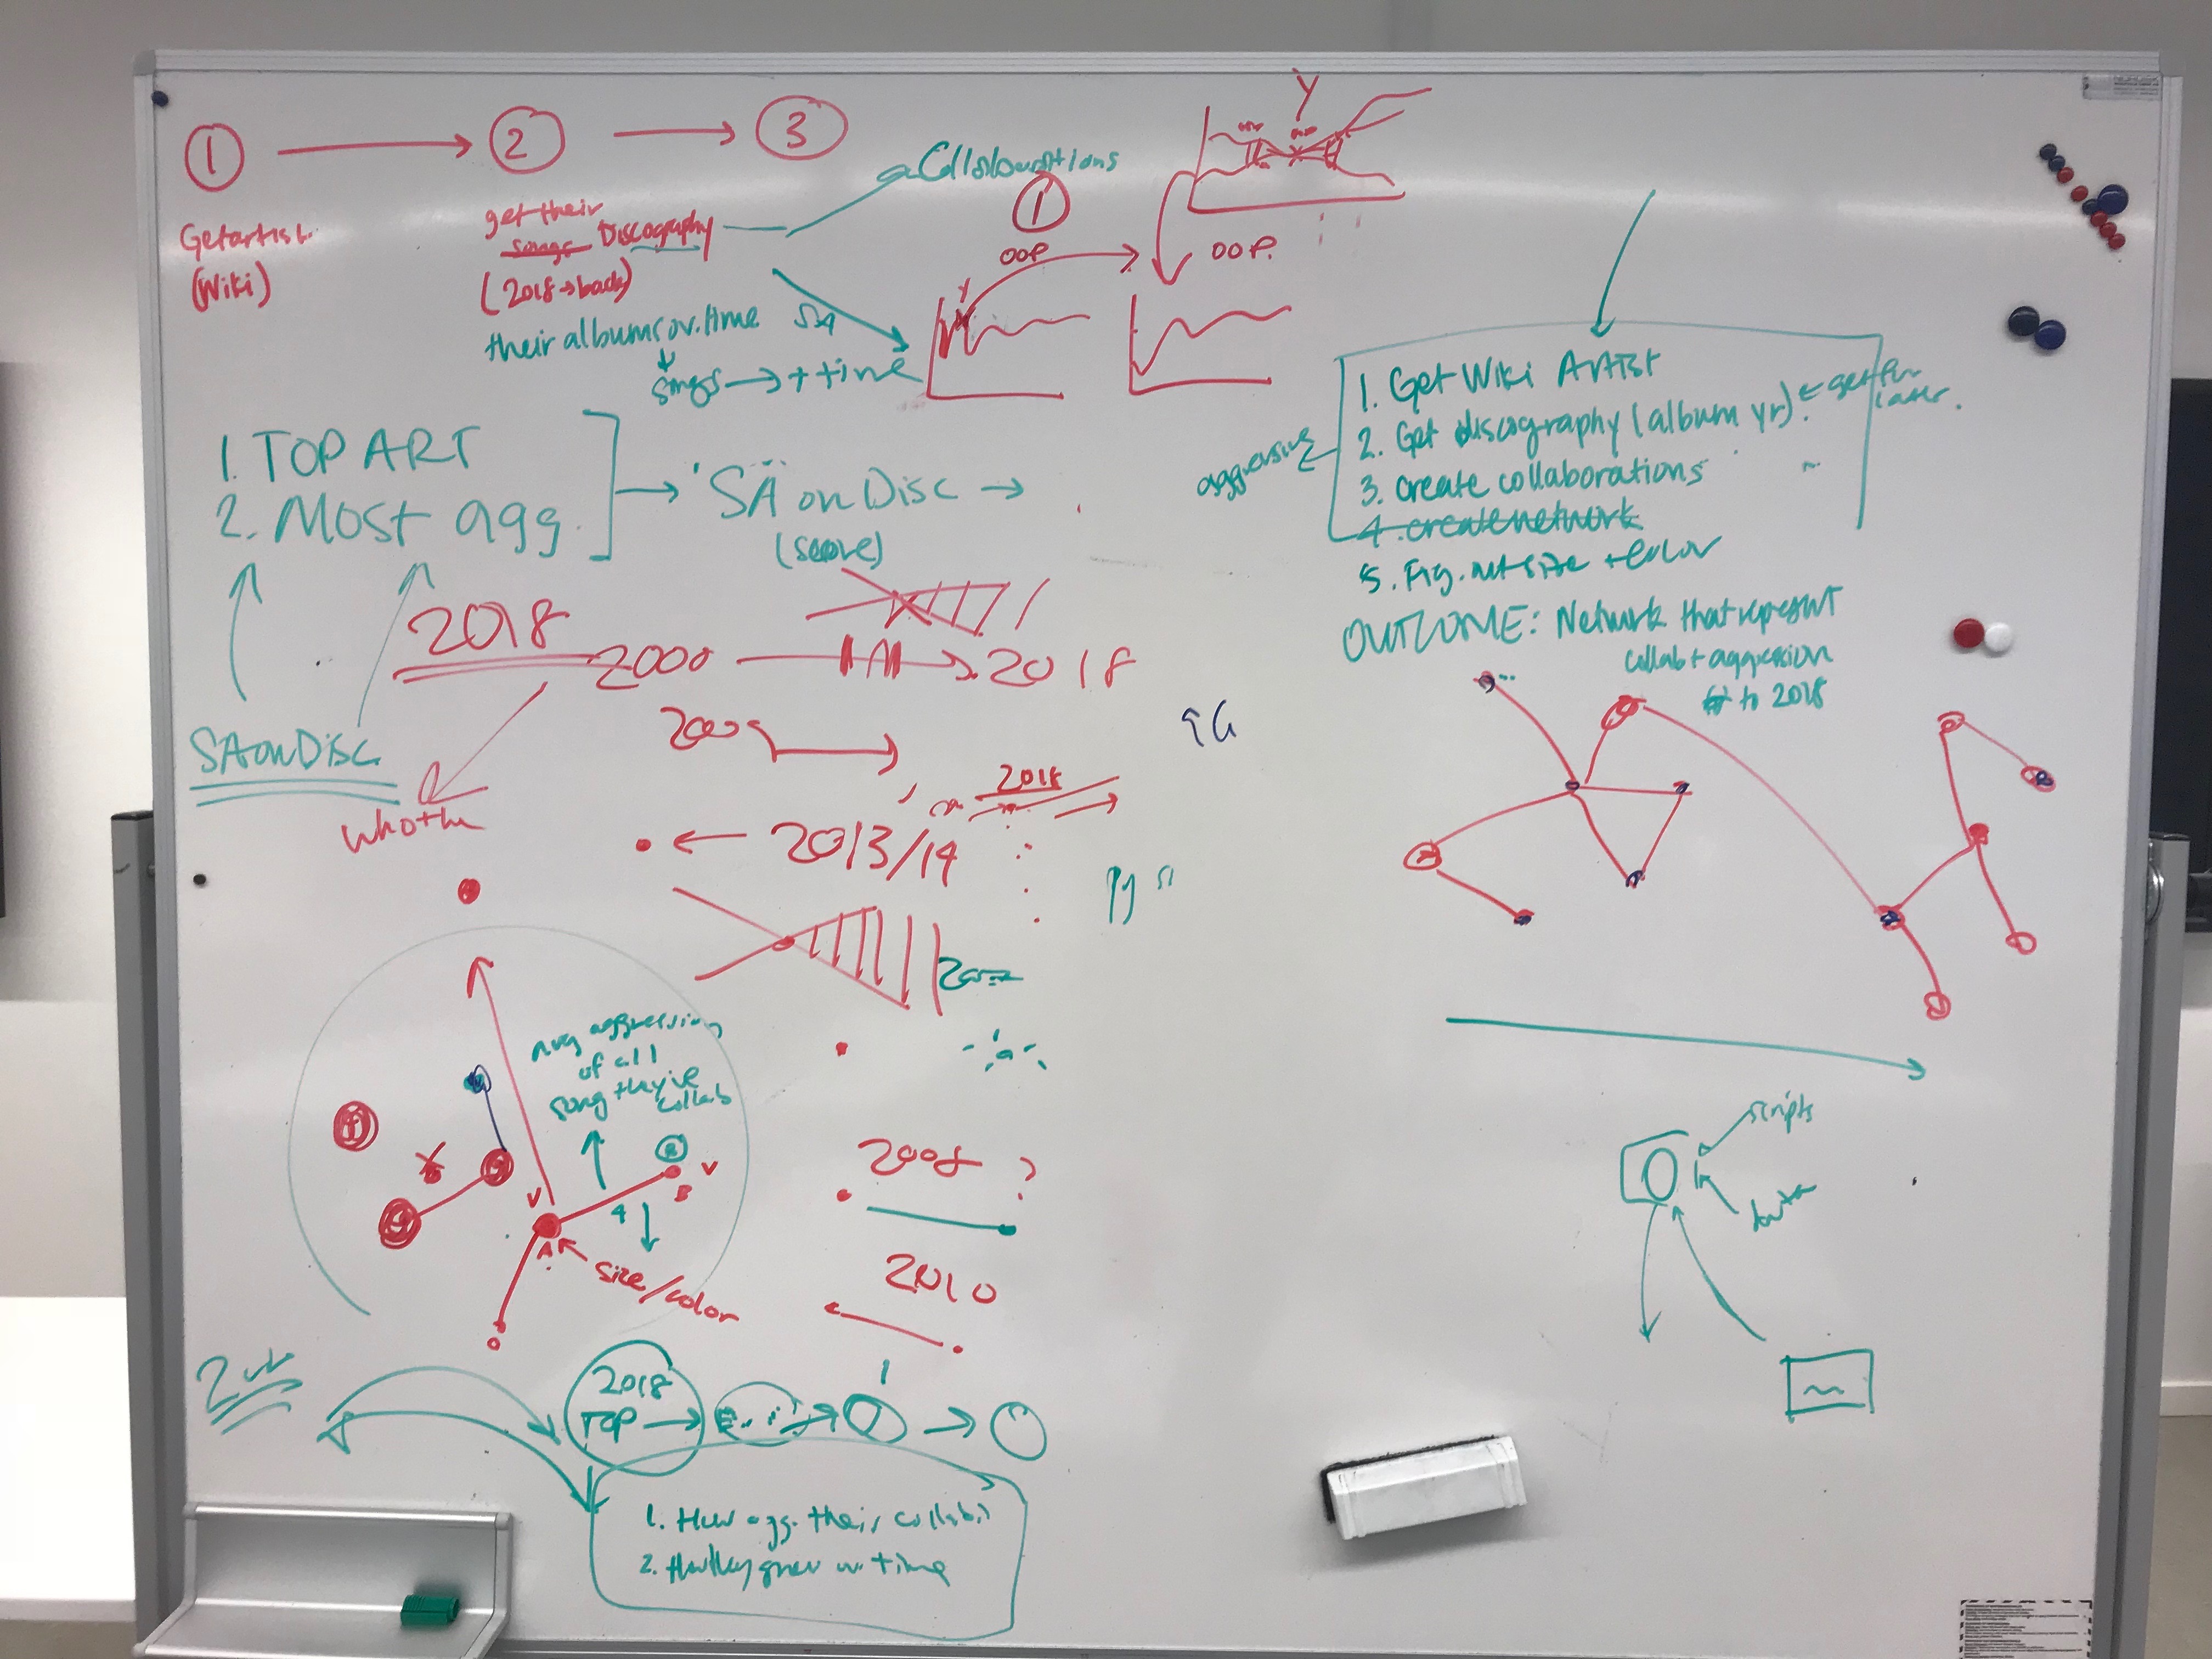 1
2
3
Get artist
(Wiki)
get their
songs Discography
(2018→back)
Collaborations
their albums ov. time SA
songs → + time
1
OOP
OOP.
Y
Y
1. TOP ART
2. Most agg.
SA on Disc →
(score)
SA on Disc
2018
2000
2018
2013/14
2018
2008 ?
2010
avg aggression
of all
song they've
collab
A
B
4
size/color
2018
TOP →
1. How agg. their collab
2. How they grew ov. time
1. Get Wiki Artist
2. Get discography (album yr) ←
later.
aggressive
3. create collaborations
4. create network
5. Fig. out size + color
OUTCOME: Network that represent
collab + aggression
to 2018
scripts
data